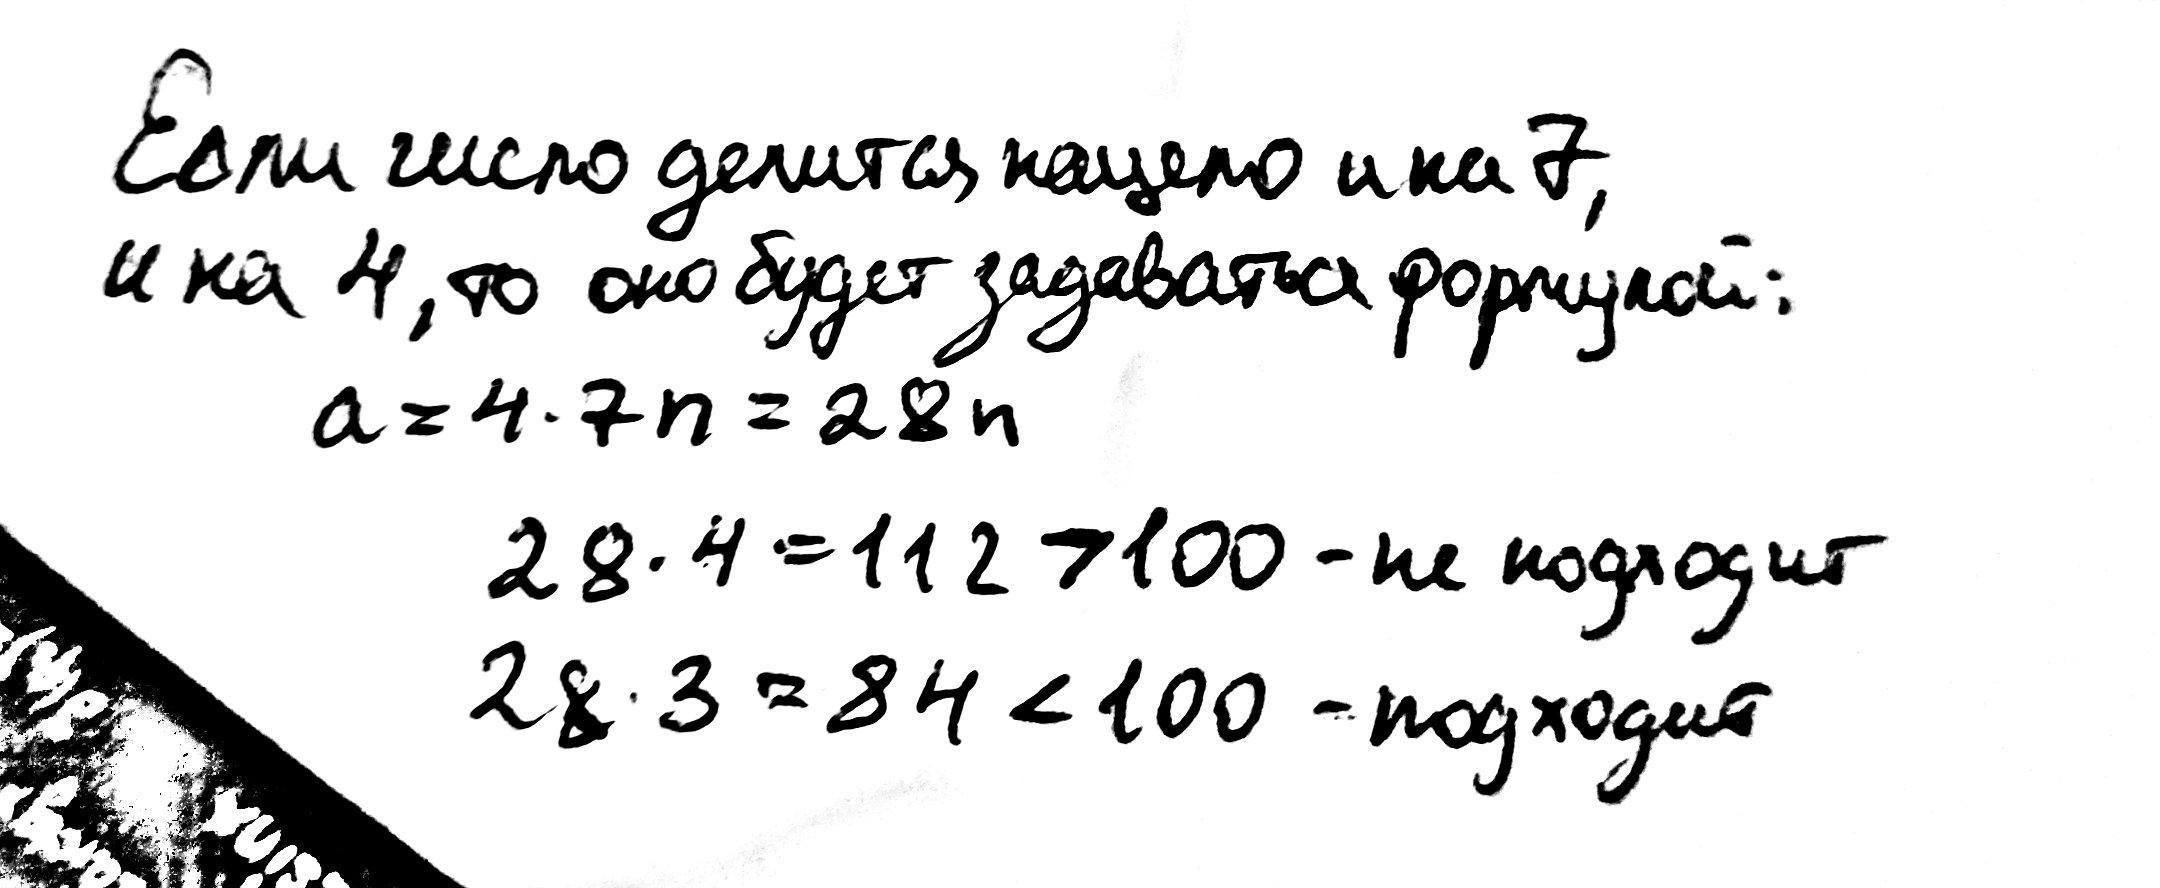 Если число делится нацело и на 7,
и на 4, то оно будет задаваться формулой:
a = 4 · 7n = 28n
28 · 4 = 112 > 100 - не подходит
28 · 3 = 84 < 100 - подходит